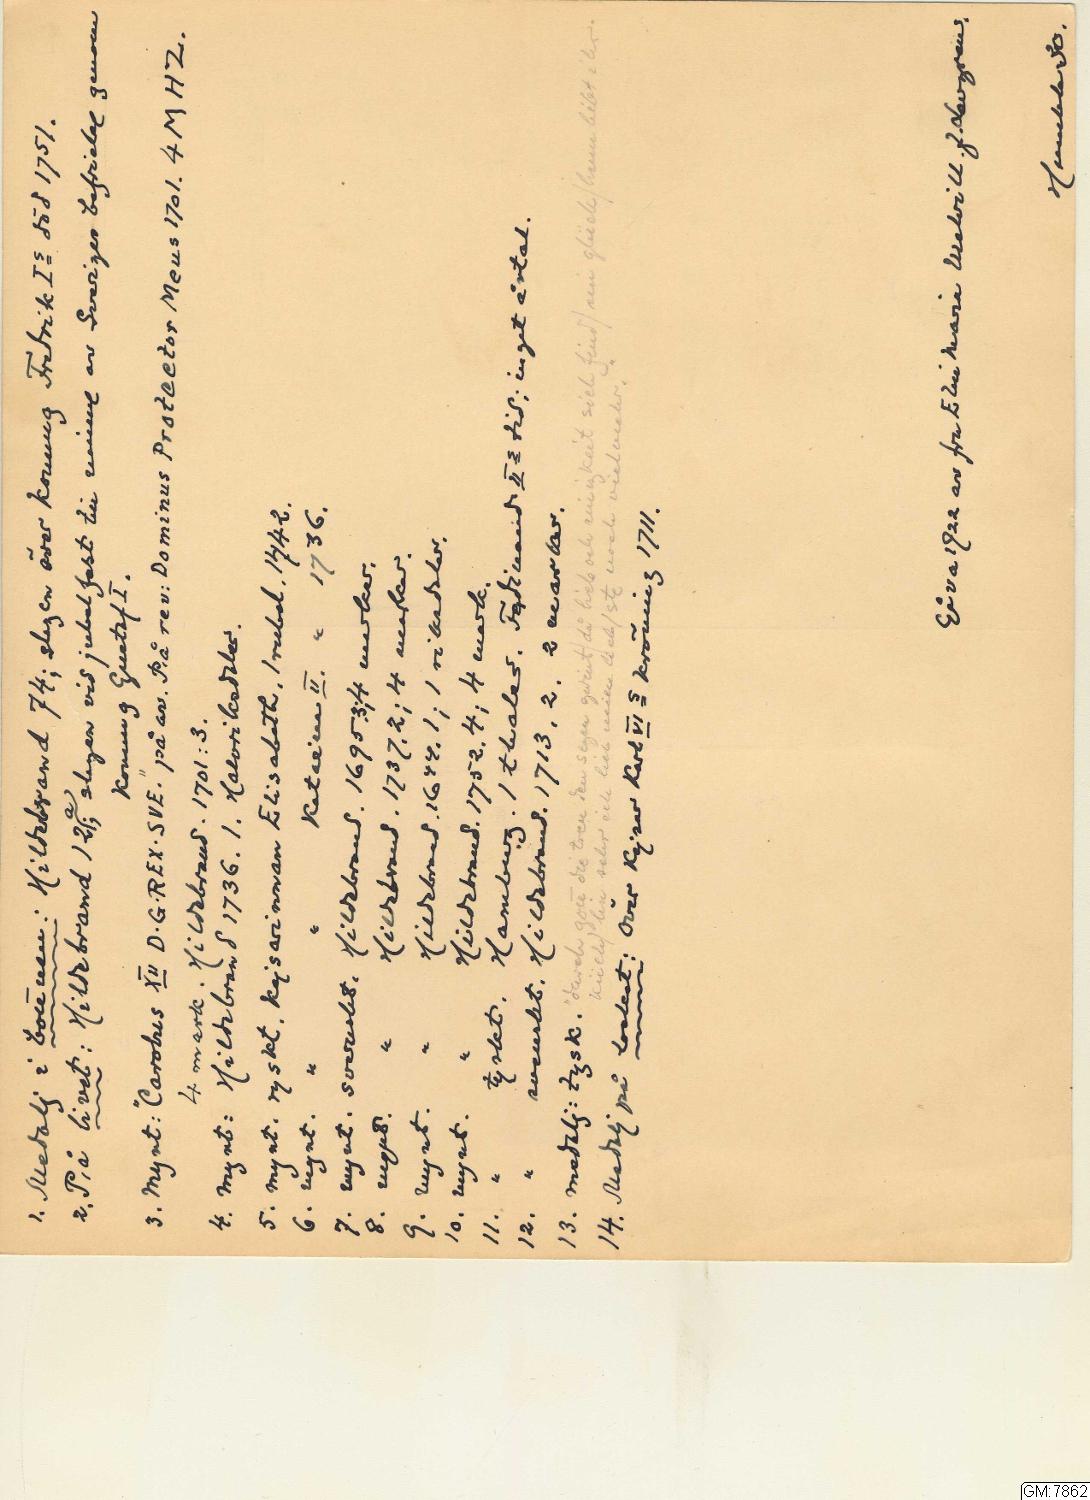 1. Medalj i botten: Hildebrand 74; slagen över konung Fredrik I:s död 1751.
2. På livet: Hildebrand 1 a; slagen vid jubelfest till minne av Sveriges befrielse genom
konung Gustaf I.
3. Mynt: "Carolus XII D.G.REX.SVE." på av. På rev: Dominus Protector Meus 1701. 4 M HZ.
4 mark. Hildebrand. 1701:3.
4. Mynt: Hildebrand 1736. 1. Halvriksdaler.
5. mynt. ryskt. Kejsarinnan Elisabeth. 1 rubel. 1742.
6. mynt. " " Katarina II. " 1736.
7. mynt. svenskt. Hildebrand. 1695.3; 4 marker.
8. mynt. " Hildebrand. 1737.2; 4 marker.
9. mynt. " Hildebrand. 1644.1; 1 riksdaler.
10. mynt. " Hildebrand. 1752.4; 4 mark.
11. " tyskt. Hamburg. 1 thaler. Ferdinand II:s tid; inget årtal.
12. " svenskt. Hildebrand. 1713. 2. 2 marker.
13. medalj: tysk. "durch gott die treu den segen
14. Medalj på locket: över Kejsar Karl VI:s kröning 1711.
Gåva 1922 av fru Elin Maria
GM:7862